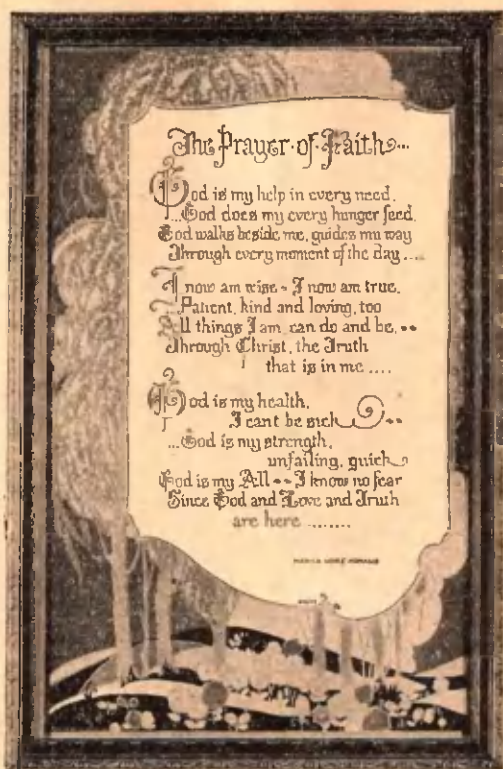 The Prayer·of·Faith...
God is my help in every need,
...God does my every hunger feed,
God walks beside me, guides my way
Through every moment of the day....
I now am wise - I now am true,
...Patient, kind and loving, too
All things I am, can do and be, ..
Through Christ, the Truth
that is in me ....
God is my health,
I can't be sick ..
...God is my strength,
unfailing, quick
God is my All -- I know no fear
Since God and Love and Truth
are here ........